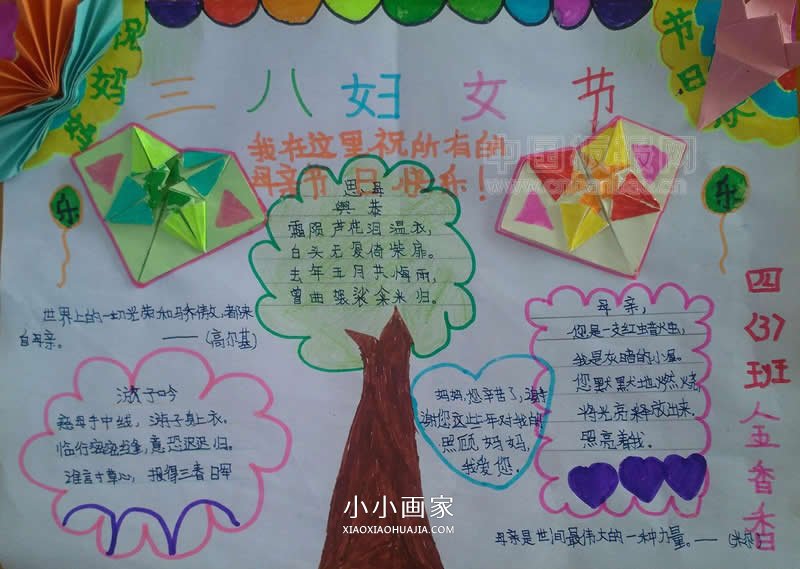 祝妈妈
节日乐
三八妇女节
我在这里祝所有的
母亲节日快乐！
乐
乐
思母
與恭
霜陨芦花泪湿衣，
白头无复倚柴扉。
去年五月黄梅雨，
曾典袈裟籴米归。
世界上的一切光荣和骄傲，都来
自母亲。
——(高尔基)
游子吟
慈母手中线，游子身上衣。
临行密密缝，意恐迟迟归。
谁言寸草心，报得三春晖
妈妈，您辛苦了，谢
谢您这些年对我的
照顾，妈妈，
我爱您。
母亲，
您是一支红蜡烛，
我是灰暗的小屋。
您默默地燃烧
将光亮释放出来。
照亮着我。
母亲是世间最伟大的一种力量。——(米尔)
四
(3)
班
金
香
香
中国板报网
小小画家
XIAOXIAOHUAJIA.COM